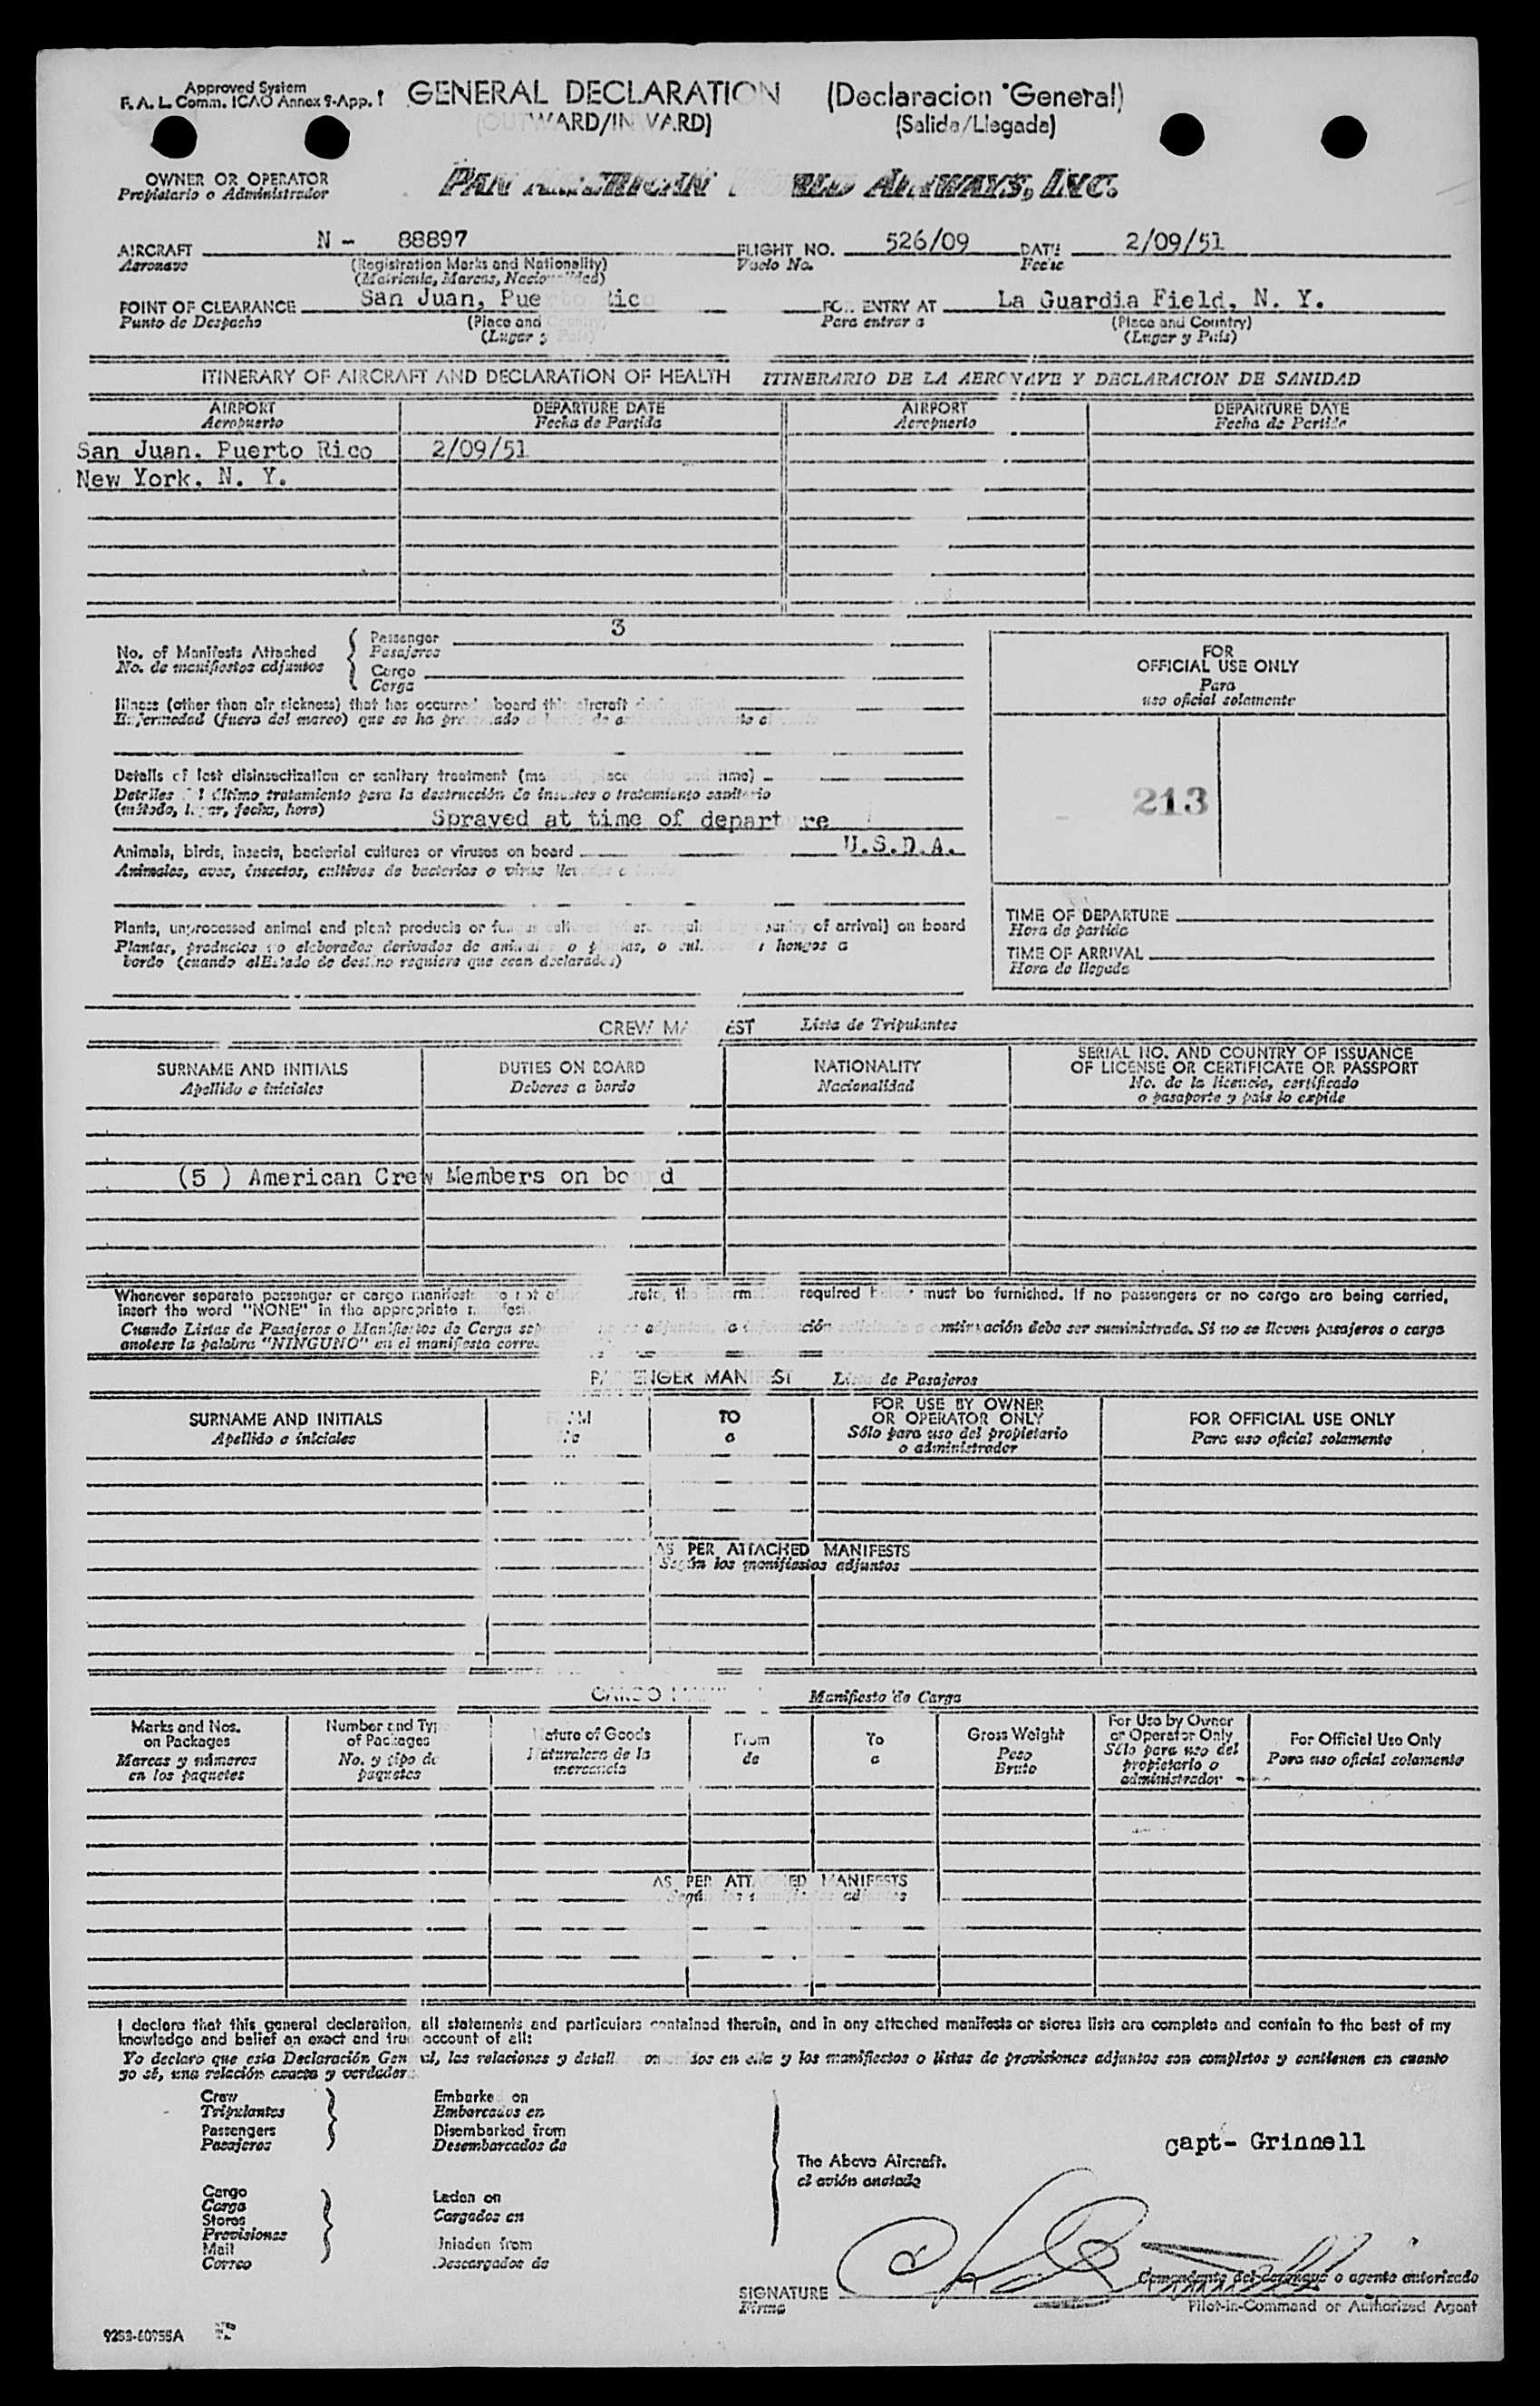 Approved System
F. A. L. Comm. ICAO Annex 9-App. 1
GENERAL DECLARATION (Declaracion General)
(OUTWARD/INWARD) (Salida/Llegada)
OWNER OR OPERATOR
Propietario o Administrador
PAN AMERICAN WORLD AIRWAYS, INC.
AIRCRAFT N - 88897 FLIGHT NO. 526/09 DATE 2/09/51
Aeronave (Registration Marks and Nationality) Vuelo No. Fecha
(Matricula, Marcas, Nacionalidad)
POINT OF CLEARANCE San Juan, Puerto Rico FOR ENTRY AT La Guardia Field, N. Y.
Punto de Despacho (Place and Country) Para entrar a (Place and Country)
(Lugar y País) (Lugar y País)
ITINERARY OF AIRCRAFT AND DECLARATION OF HEALTH ITINERARIO DE LA AERONAVE Y DECLARACION DE SANIDAD
AIRPORT DEPARTURE DATE AIRPORT DEPARTURE DATE
Aeropuerto Fecha de Partida Aeropuerto Fecha de Partida
San Juan. Puerto Rico 2/09/51
New York. N. Y.
No. of Manifests Attached
No. de manifiestos adjuntos
Passenger 3
Pasajeros
Cargo
Carga
FOR
OFFICIAL USE ONLY
Para
uso oficial solamente
213
Illness (other than air sickness) that has occurred board this aircraft during
Enfermedad (fuera del mareo) que se ha
Details of last disinsectization or sanitary treatment (method, place, date and time)
Detalles del último tratamiento para la destrucción de insectos o tratamiento sanitario
(método, lugar, fecha, hora) Sprayed at time of departure
Animals, birds, insects, bacterial cultures or viruses on board U.S.D.A.
Animales, aves, insectos, cultivos de bacterias o virus
Plants, unprocessed animal and plant products or fungus cultures (where required by country of arrival) on board
Plantas, productos no elaborados derivados de animales o plantas, o cultivos de hongos a
bordo (cuando el Estado de destino requiere que sean declarados)
TIME OF DEPARTURE
Hora de partida
TIME OF ARRIVAL
Hora de llegada
CREW MANIFEST Lista de Tripulantes
SURNAME AND INITIALS DUTIES ON BOARD NATIONALITY SERIAL NO. AND COUNTRY OF ISSUANCE
OF LICENSE OR CERTIFICATE OR PASSPORT
Apellido e iniciales Deberes a bordo Nacionalidad No. de la licencia, certificado
o pasaporte y país lo expide
(5 ) American Crew Members on board
Whenever separate passenger or cargo manifests are not required below must be furnished. If no passengers or no cargo are being carried,
insert the word "NONE" in the appropriate manifest.
Cuando Listas de Pasajeros o Manifiestos de Carga adjuntan, la información solicitada a continuación debe ser suministrada. Si no se lleven pasajeros o carga
anotese la palabra "NINGUNO" en el manifiesto
PASSENGER MANIFEST Lista de Pasajeros
SURNAME AND INITIALS FROM TO FOR USE BY OWNER
OR OPERATOR ONLY FOR OFFICIAL USE ONLY
Apellido e iniciales De a Sólo para uso del propietario
o administrador Para uso oficial solamente
AS PER ATTACHED MANIFESTS
Según los manifiestos adjuntos
CARGO Manifiesto de Carga
Marks and Nos.
on Packages
Marcas y números
en los paquetes
Number and Type
of Packages
No. y tipo de
paquetes
Nature of Goods
Naturaleza de la
mercancía
From
de
To
a
Gross Weight
Peso
Bruto
For Use by Owner
or Operator Only
Sólo para uso del
propietario o
administrador
For Official Use Only
Para uso oficial solamente
AS PER ATTACHED MANIFESTS
Según los manifiestos adjuntos
I declare that this general declaration, all statements and particulars contained therein, and in any attached manifests or stores lists are complete and contain to the best of my
knowledge and belief an exact and true account of all:
Yo declaro que esta Declaración General, las relaciones y detalles contenidos en ella y los manifiestos o listas de provisiones adjuntos son completos y contienen en cuanto
yo sé, una relación exacta y verdadera
Crew
Tripulantes
Passengers
Pasajeros
Embarked on
Embarcados en
Disembarked from
Desembarcados de
Cargo
Carga
Stores
Provisiones
Mail
Correo
Laden on
Cargados en
Unladen from
Descargados de
The Above Aircraft.
el avión anotado
Capt- Grinnell
SIGNATURE
Firma
Comandante del aeronave o agente autorizado
Pilot-in-Command or Authorized Agent
9253-60955A